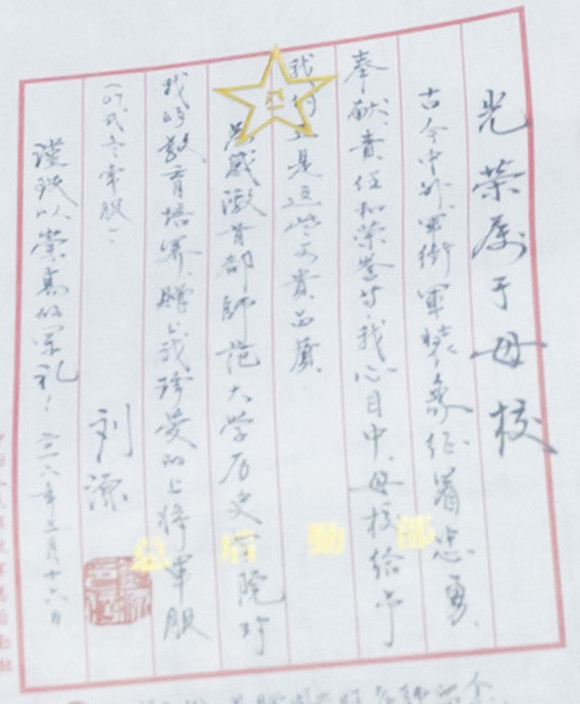 光荣属于母校
古今中外军衔军装象征着忠勇、
奉献、责任和荣誉等,我心目中,母校给予
我们的是这些可贵品质
为感激首都師范大学历史学院对
我的教育培养,赠上我珍爱的上将軍服
(07式冬常服)。
谨致以崇高的军礼!
刘源
二〇一六年三月十六日
总后勤部